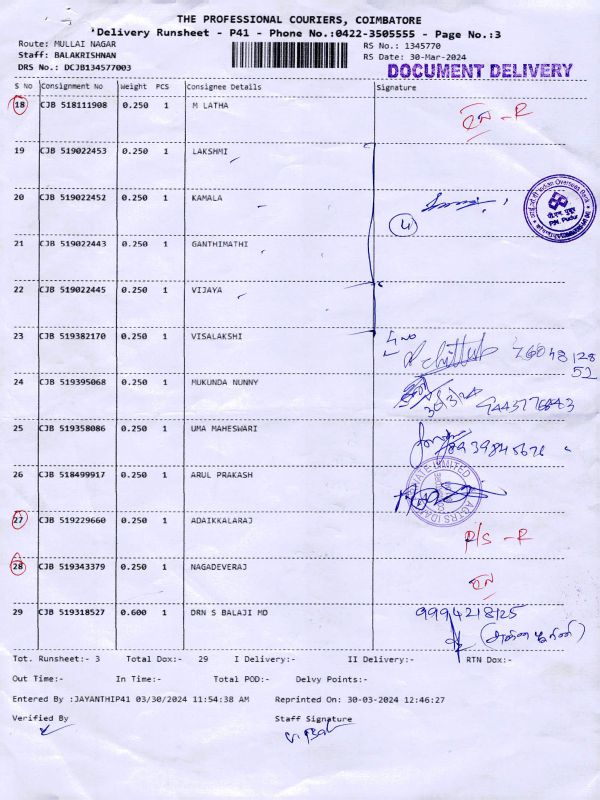 THE PROFESSIONAL COURIERS, COIMBATORE
Delivery Runsheet - P41 - Phone No.:0422-3505555 - Page No.:3
Route: MULLAI NAGAR RS No.: 1345770
Staff: BALAKRISHNAN RS Date: 30-Mar-2024
DRS No.: DCJB134577003 DOCUMENT DELIVERY
S No Consignment No Weight PCS Consignee Details Signature
18 CJB 518111908 0.250 1 M LATHA
19 CJB 519022453 0.250 1 LAKSHMI
20 CJB 519022452 0.250 1 KAMALA
Indian Overseas Bank
21 CJB 519022443 0.250 1 GANTHIMATHI
22 CJB 519022445 0.250 1 VIJAYA
23 CJB 519382170 0.250 1 VISALAKSHI
24 CJB 519395068 0.250 1 MUKUNDA NUNNY
25 CJB 519358086 0.250 1 UMA MAHESWARI
26 CJB 518499917 0.250 1 ARUL PRAKASH
27 CJB 519229660 0.250 1 ADAIKKALARAJ P/S - R
28 CJB 519343379 0.250 1 NAGADEVERAJ
29 CJB 519318527 0.600 1 DRN S BALAJI MD 9994218125
Tot. Runsheet:- 3 Total Dox:- 29 I Delivery:- II Delivery:- RTN Dox:-
Out Time:- In Time:- Total POD:- Delvy Points:-
Entered By :JAYANTHIP41 03/30/2024 11:54:38 AM Reprinted On: 30-03-2024 12:46:27
Verified By Staff Signature